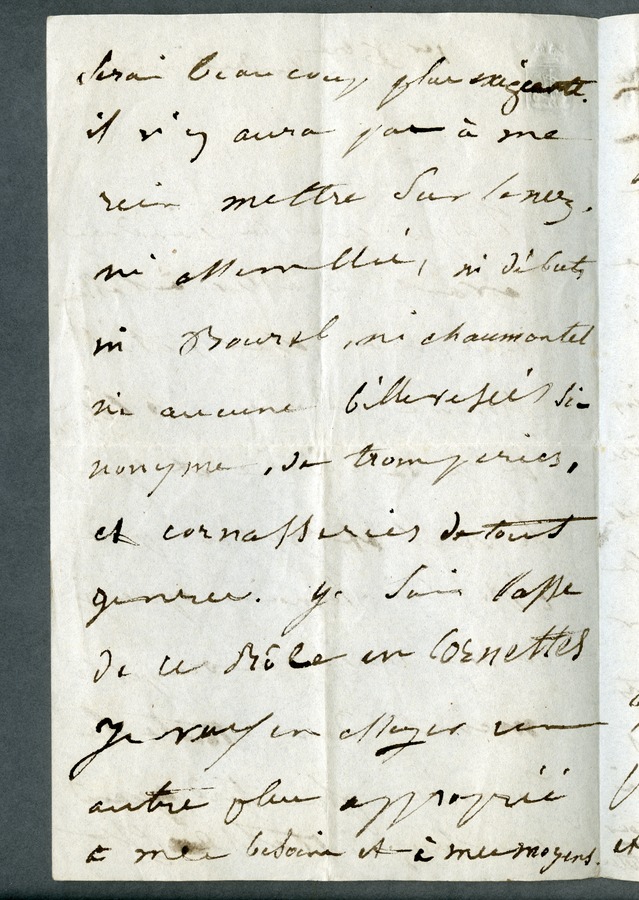 serai beaucoup plus exigeante.
il n'y aura pas à me
rien mettre sur le nez,
ni assemblée, ni débats
ni Bourse, ni chaumontel
ni aucune billevesées si-
nonyme, de tromperies,
et cornasseries de tout
genree. je suis lasse
de ce rôle en Cornettes
je vais en essayer un
autre plus approprié
a mes besoins et à mes moyens.
et